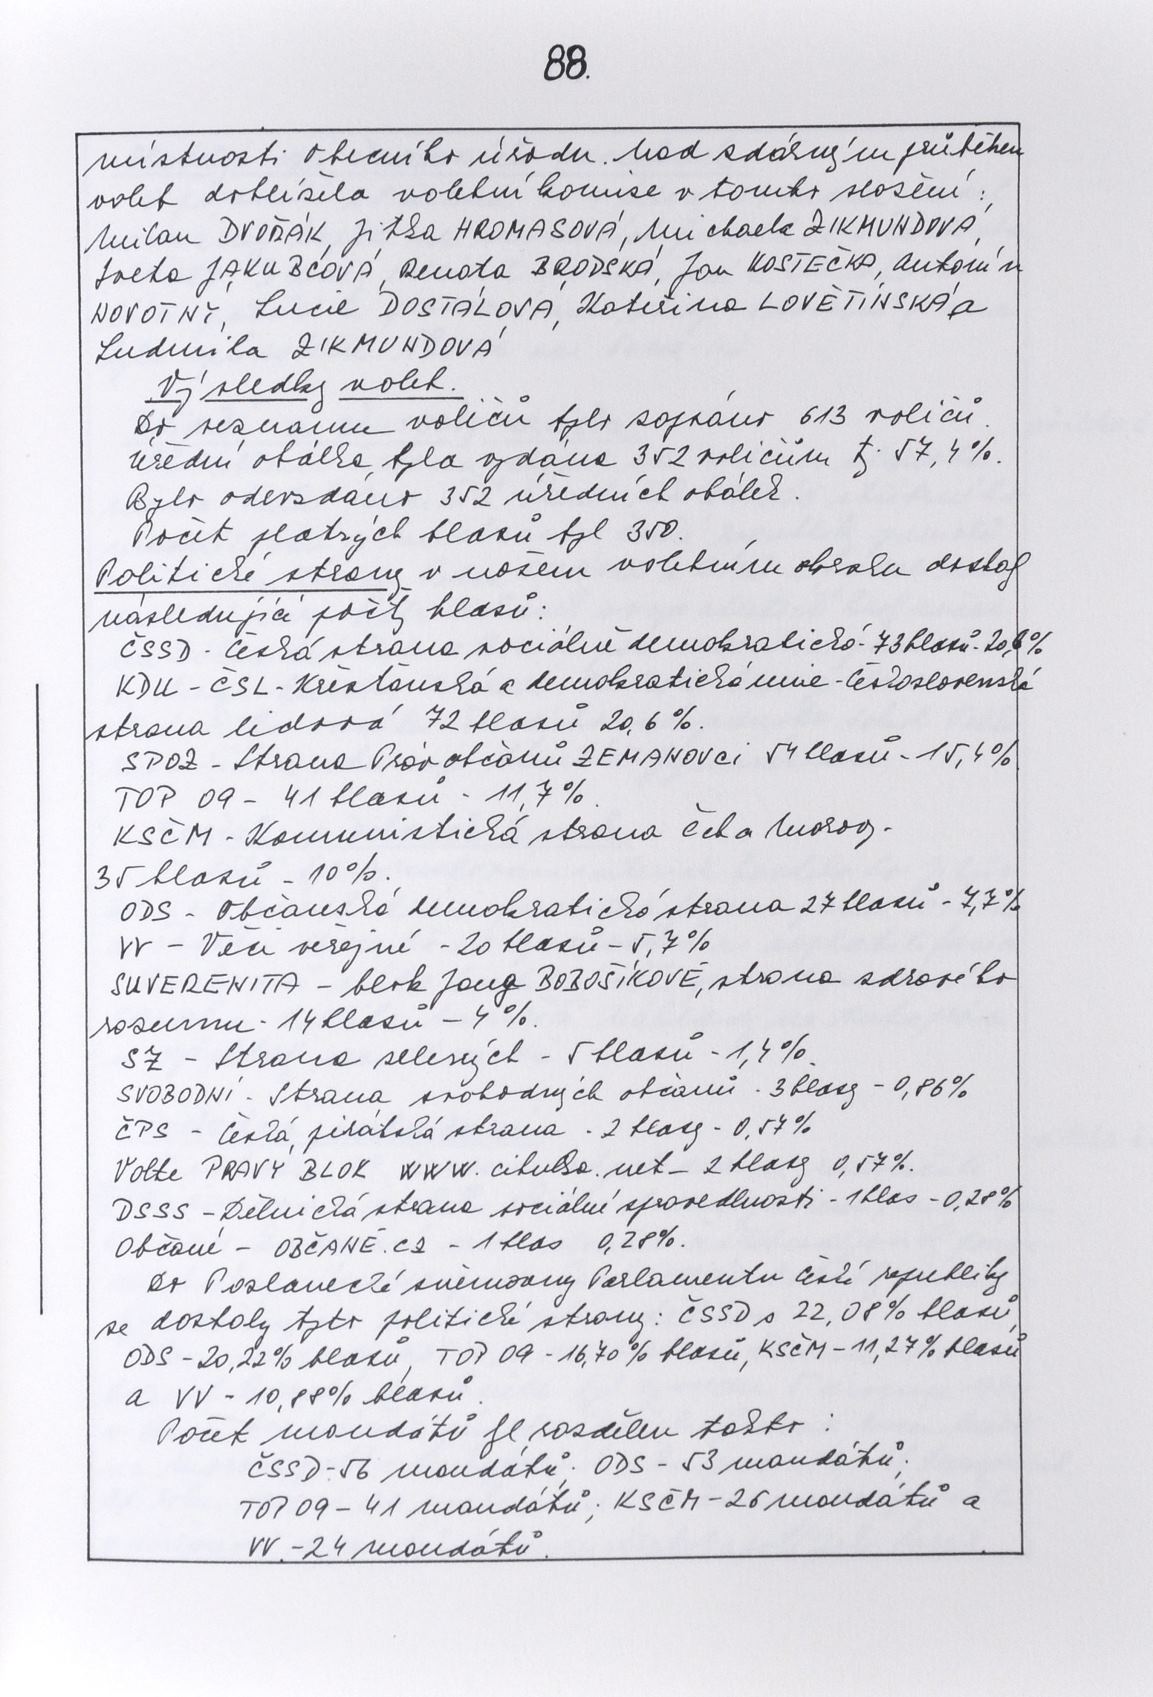 88.
místnosti Obecního úřadu. Nad zdárným průběhem
voleb dohlížela volební komise v tomto složení:
Milan DVOŘÁK, Jitka HROMASOVÁ, Michaela ZIKMUNDOVÁ,
Iveta JAKUBCOVÁ, Renata BRODSKÁ, Jan KOSTEČKA, Antonín
NOVOTNÝ, Lucie DOSTÁLOVÁ, Kateřina LOVĚTÍNSKÁ a
Ludmila ZIKMUNDOVÁ
Výsledky voleb.
Do seznamu voličů bylo zapsáno 613 voličů.
Úřední obálka byla vydána 352 voličům tj. 57,4%.
Bylo odevzdáno 352 úředních obálek.
Počet platných hlasů byl 350.
Politické strany v našem volebním okrsku dostaly
následující počty hlasů:
ČSSD - Česká strana sociálně demokratická - 73 hlasů - 20,8%
KDU - ČSL - Křesťanská a demokratická unie - Československá
strana lidová 72 hlasů 20,6%.
SPOZ - Strana Práv občanů ZEMANOVCI 54 hlasů - 15,4%.
TOP 09 - 41 hlasů - 11,7%.
KSČM - Komunistická strana Čech a Moravy -
35 hlasů - 10%.
ODS - Občanská demokratická strana 27 hlasů - 7,7%
VV - Věci veřejné - 20 hlasů - 5,7%
SUVERENITA - blok Jany BOBOŠÍKOVÉ, strana zdravého
rozumu - 14 hlasů - 4%.
SZ - Strana zelených - 5 hlasů - 1,4%.
SVOBODNÍ - Strana svobodných občanů - 3 hlasy - 0,86%
ČPS - Česká pirátská strana - 2 hlasy - 0,57%
Volte PRAVÝ BLOK www.cibulka.net - 2 hlasy 0,57%.
DSSS - Dělnická strana sociální spravedlnosti - 1 hlas - 0,28%
Občané - OBČANÉ.CZ - 1 hlas 0,28%.
Do Poslanecké sněmovny Parlamentu České republiky
se dostaly tyto politické strany: ČSSD s 22,08% hlasů,
ODS - 20,22% hlasů, TOP 09 - 16,70% hlasů, KSČM - 11,27% hlasů
a VV - 10,88% hlasů.
Počet mandátů byl rozdělen takto:
ČSSD - 56 mandátů; ODS - 53 mandátů;
TOP 09 - 41 mandátů; KSČM - 26 mandátů a
VV - 24 mandátů.